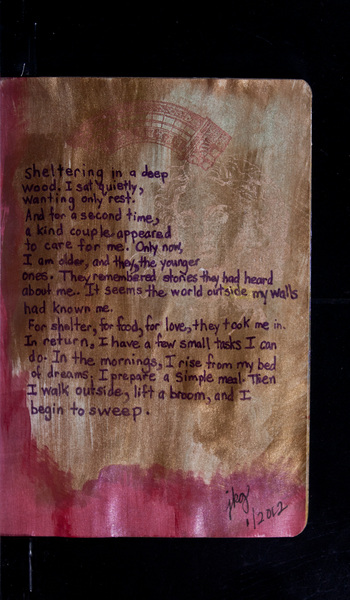 Sheltering in a deep
wood. I sat quietly,
wanting only rest.
And for a second time,
a kind couple appeared
to care for me. Only now,
I am older, and they, the younger
ones. They remembered stories they had heard
about me. It seems the world outside my walls
had known me.
For shelter, for food, for love, they took me in.
In return, I have a few small tasks I can
do. In the mornings, I rise from my bed
of dreams. I prepare a simple meal. Then
I walk outside, lift a broom, and I
begin to sweep.
jkg
1/2012